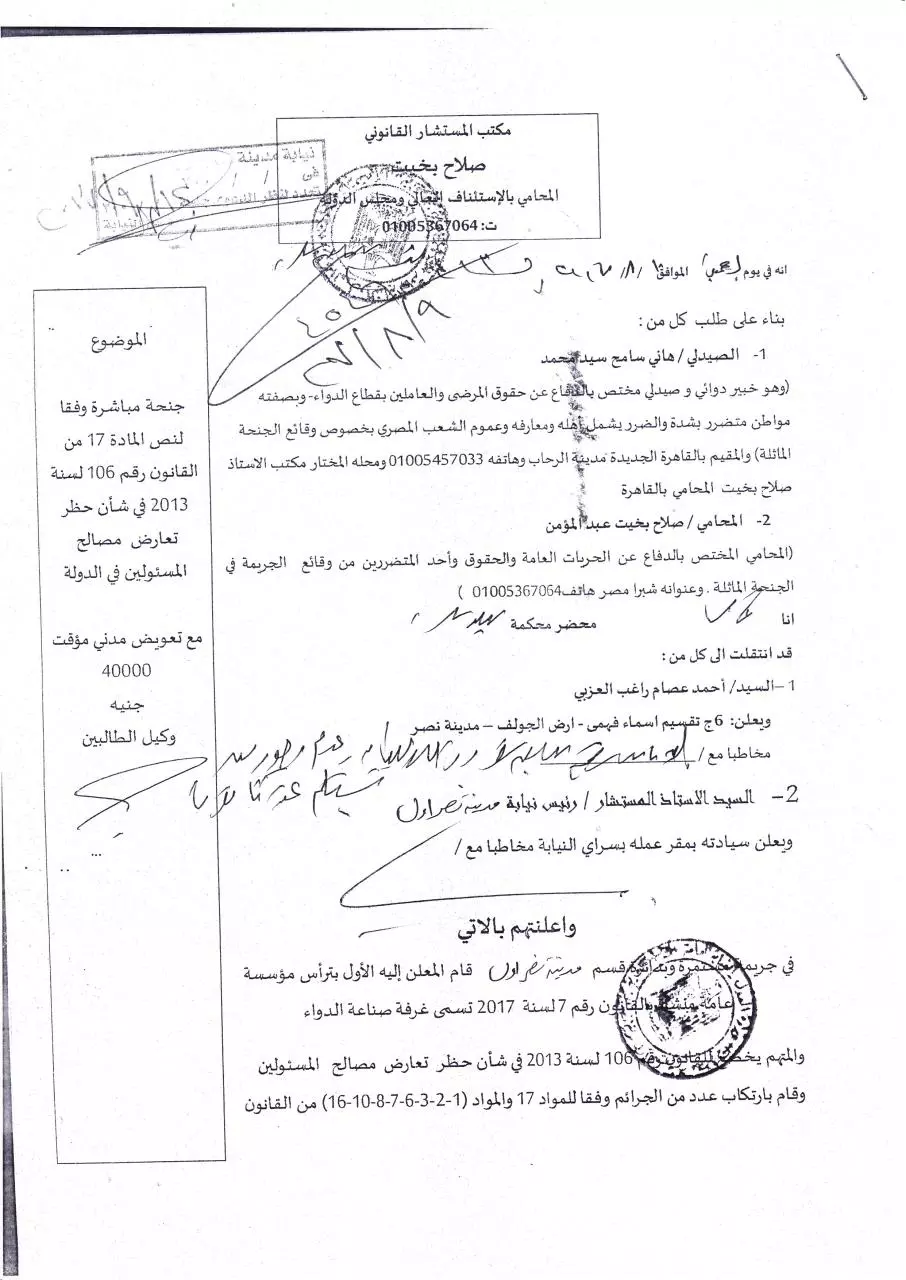 مكتب المستشار القانوني
صلاح بخيت
المحامي بالإستئناف العالي ومجلس الدولة
ت: 01005367064
نيابة مدينة
انه في يوم الموافق
بناء على طلب كل من :
1- الصيدلي / هاني سامح سيد محمد
(وهو خبير دوائي و صيدلي مختص بالدفاع عن حقوق المرضى والعاملين بقطاع الدواء- وبصفته
مواطن متضرر بشدة والضرر يشمل أهله ومعارفه وعموم الشعب المصري بخصوص وقائع الجنحة
الماثلة) والمقيم بالقاهرة الجديدة مدينة الرحاب وهاتفه 01005457033 ومحله المختار مكتب الاستاذ
صلاح بخيت المحامي بالقاهرة
2- المحامي / صلاح بخيت عبد المؤمن
(المحامي المختص بالدفاع عن الحريات العامة والحقوق وأحد المتضررين من وقائع الجريمة في
الجنحة الماثلة . وعنوانه شبرا مصر هاتف01005367064 )
انا محضر محكمة
قد انتقلت الى كل من :
1 –السيد/ أحمد عصام راغب العزبي
ويعلن: 6ج تقسيم اسماء فهمى - ارض الجولف – مدينة نصر
مخاطبا مع /
2– السيد الاستاذ المستشار / رئيس نيابة مدينة نصر اول
ويعلن سيادته بمقر عمله بسراي النيابة مخاطبا مع /
واعلنتهم بالاتي
في جريمة مستمرة وبدائرة قسم مدينة نصر اول قام المعلن إليه الأول بترأس مؤسسة
عامة منشأة بالقانون رقم 7 لسنة 2017 تسمى غرفة صناعة الدواء
والمتهم يخضع للقانون رقم 106 لسنة 2013 في شأن حظر تعارض مصالح المسئولين
وقام بارتكاب عدد من الجرائم وفقا للمواد 17 والمواد (1-2-3-6-7-8-10-16) من القانون
الموضوع
جنحة مباشرة وفقا
لنص المادة 17 من
القانون رقم 106 لسنة
2013 في شأن حظر
تعارض مصالح
المسئولين في الدولة
مع تعويض مدني مؤقت
40000
جنيه
وكيل الطالبين